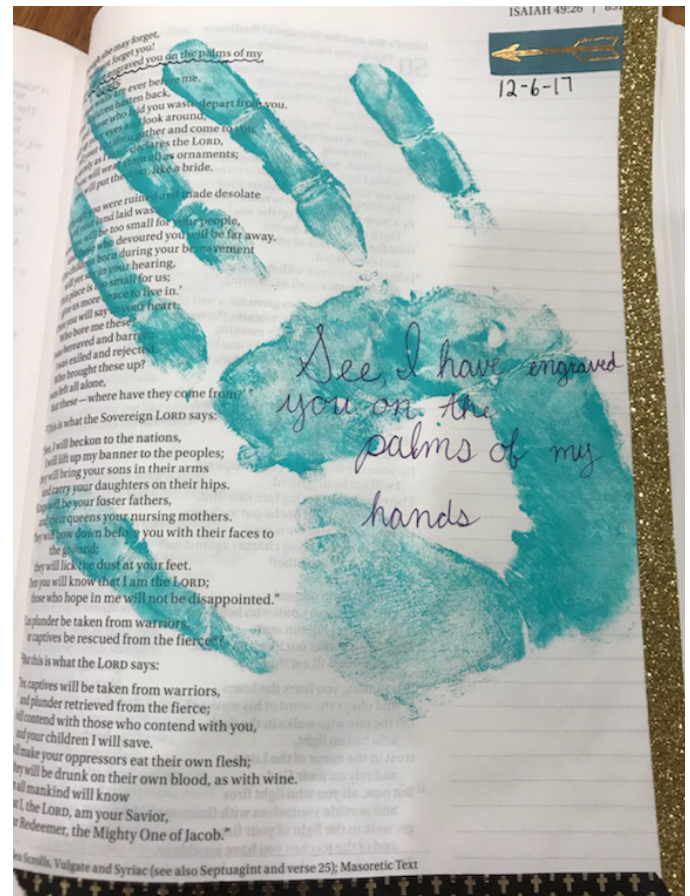 ISAIAH 49:26
12-6-17
she may forget,
forget you!
engraved you on the palms of my
are ever before me.
hasten back,
who laid you waste depart from you.
look around;
gather and come to you.
declares the LORD,
you will wear them all as ornaments;
will put them on, like a bride.
you were ruined and made desolate
land laid waste,
be too small for your people,
who devoured you will be far away.
born during your bereavement
say in your hearing,
place is too small for us;
us more space to live in.'
you will say in your heart,
Who bore me these?
was bereaved and barren;
was exiled and rejected.
Who brought these up?
was left all alone,
but these—where have they come from?'"
This is what the Sovereign LORD says:
will beckon to the nations,
will lift up my banner to the peoples;
they will bring your sons in their arms
and carry your daughters on their hips.
will be your foster fathers,
and their queens your nursing mothers.
They will bow down before you with their faces to
the ground;
they will lick the dust at your feet.
you will know that I am the LORD;
those who hope in me will not be disappointed."
Can plunder be taken from warriors,
or captives be rescued from the fierce?
But this is what the LORD says:
Yes, captives will be taken from warriors,
and plunder retrieved from the fierce;
will contend with those who contend with you,
and your children I will save.
will make your oppressors eat their own flesh;
they will be drunk on their own blood, as with wine.
all mankind will know
I, the LORD, am your Savior,
Redeemer, the Mighty One of Jacob."
Sea Scrolls, Vulgate and Syriac (see also Septuagint and verse 25); Masoretic Text
See, I have engraved
you on the
palms of my
hands